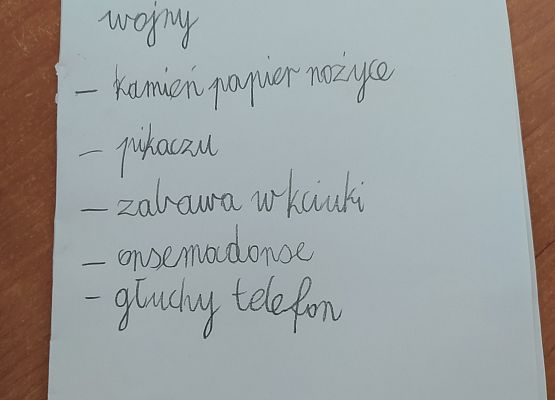 wojny
– kamień papier nożyce
– pikaczu
– zabawa w kciuki
– onsemadonse
– głuchy telefon